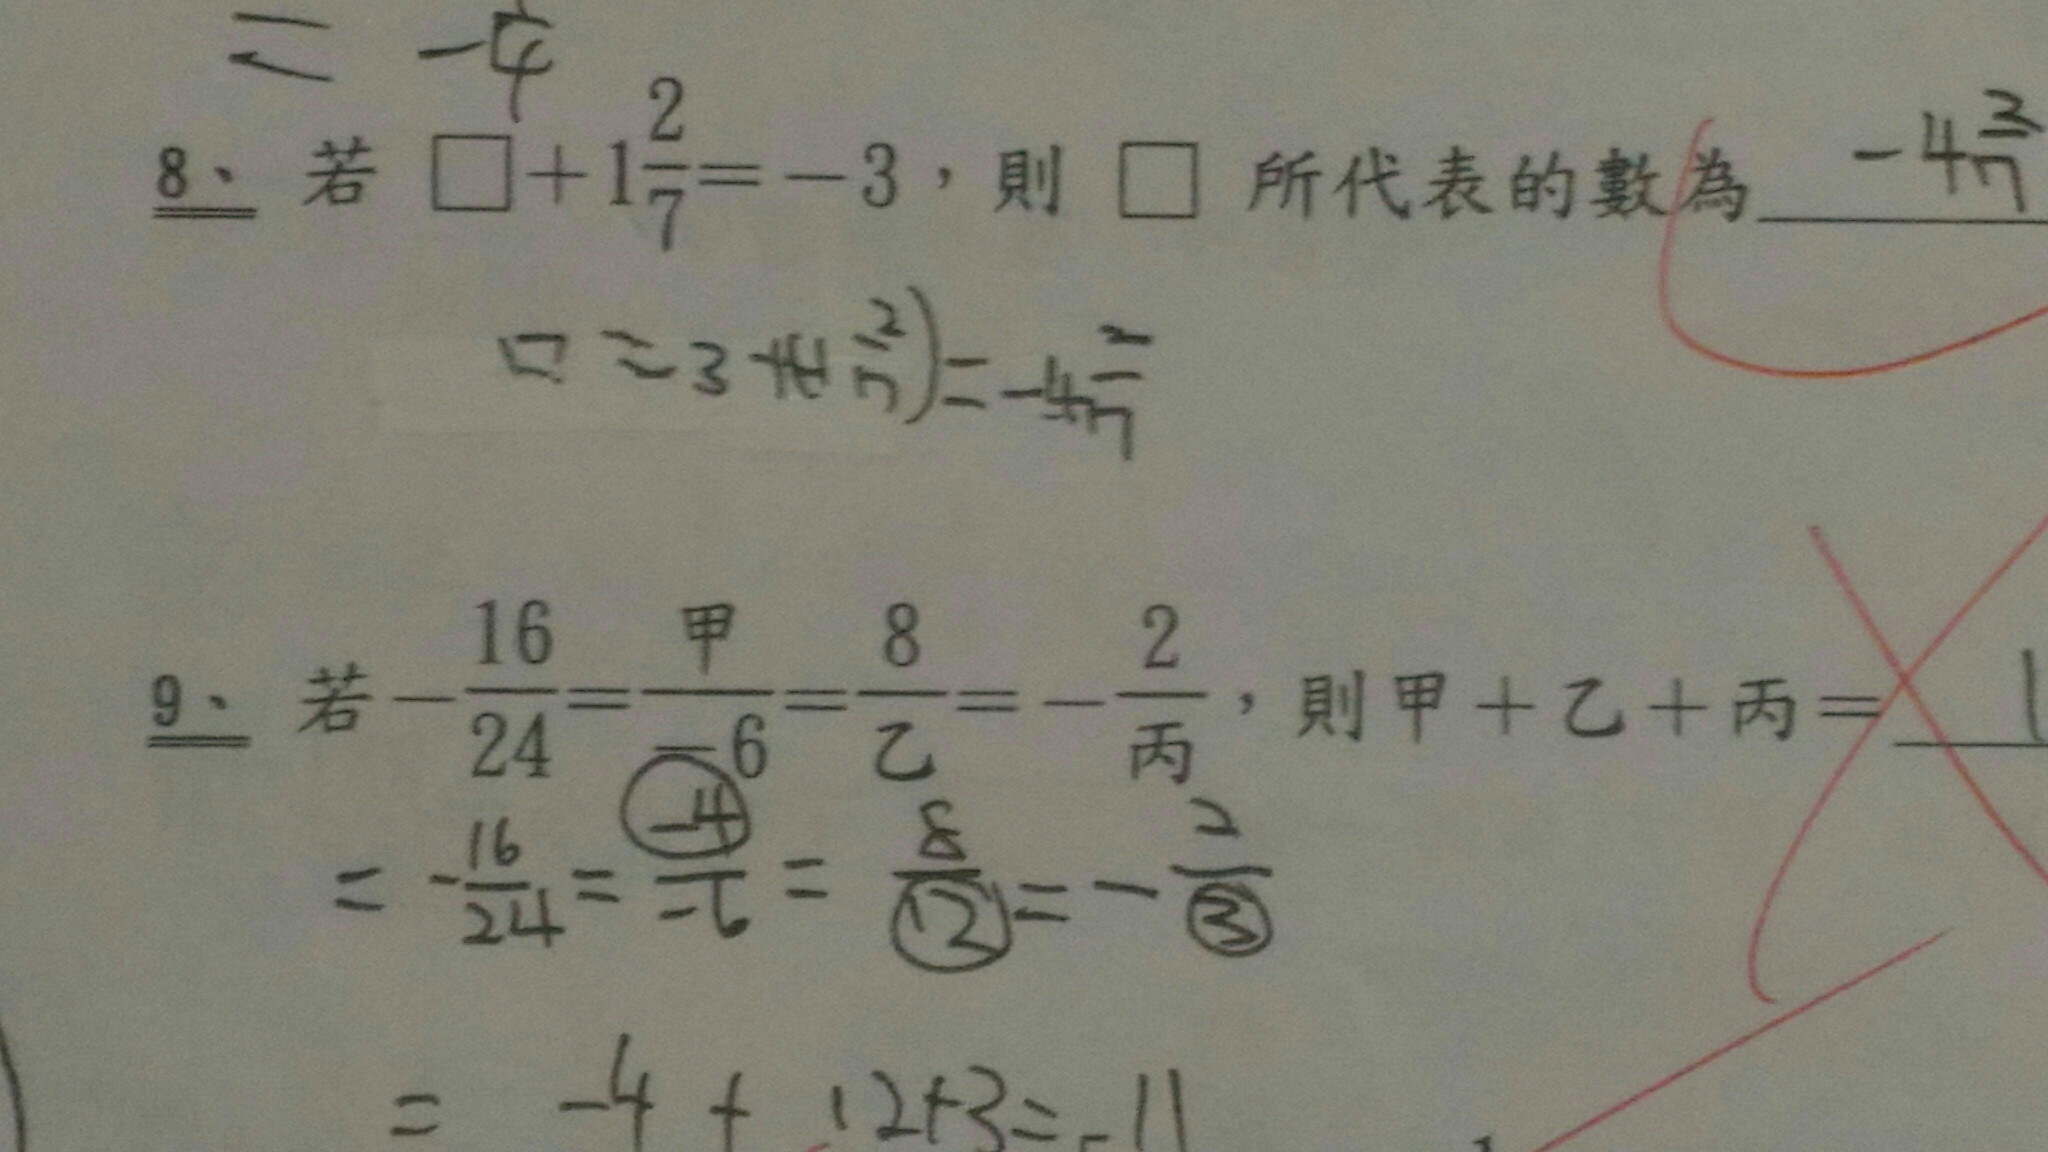 = -4
8、 若 □+1 2/7=-3,則 □ 所代表的數為 -4 2/7
□ = -3 +(-1 2/7) = -4 2/7
9、 若 -16/24=甲/-6=8/乙=-2/丙,則甲+乙+丙= 1
= -16/24 = -4/-6 = 8/12 = -2/3
= -4 + 12+3= -11